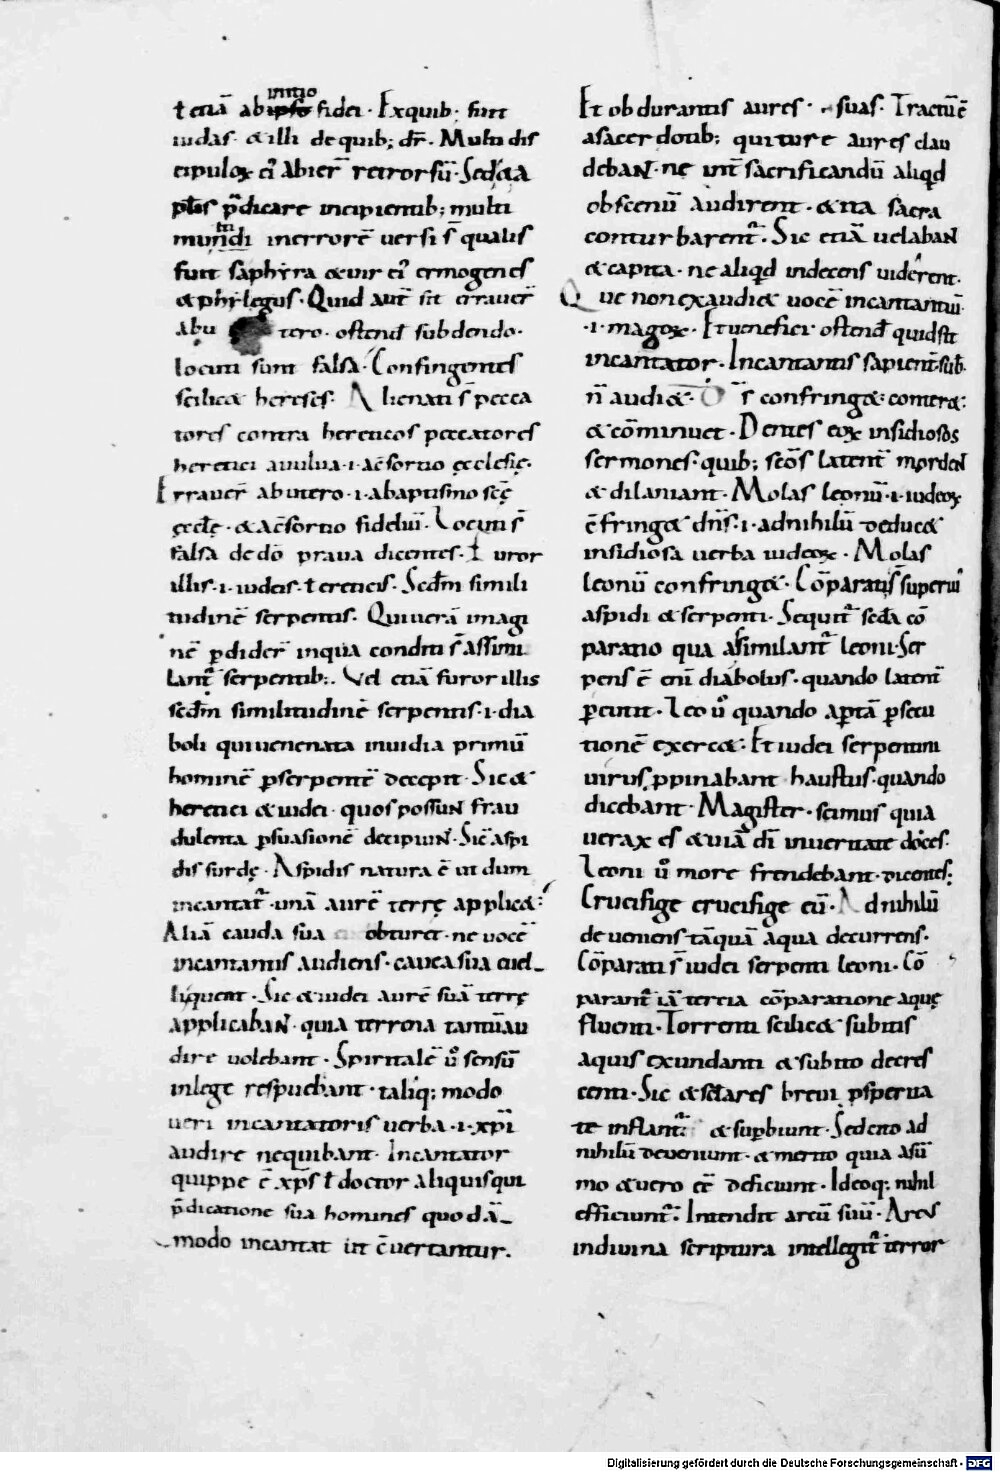 ł etiā ab initio fidei · Ex quib; sunt
iudas · & illi de quib; dr̄ · Multi dis
cipuloꝝ ei' abier̄ retrorsū · Sed &a
pl̄is p̄dicare incipientib; multi
mundi in errorē uersi s̄ qualis
fuit saphyra & uir ei' ermogenes
& phylegus · Quid aut̄ sit errauer̄
ab u tero · ostend̄ subdendo ·
locuti sunt falsa · Confingentes
scilic& hereses · Alienati s̄ pecca
tores contra hereticos peccatores
heretici a uulua · i · a c̄sortio ęcclesię ·
Errauer̄ ab utero · i · a baptismo scę̄
ęccłę · & a c̄sortio fideliū · Locuti s̄
falsa de dō praua dicentes · Furor
illis · i · iudeis · ł ereticis · Scdm̄ simili
tudinē serpentis · Qui uerā imagi
nē p̄dider̄ in qua conditi s̄ assimi
lant̄ serpentib; · Vel etiā furor illis
scdm̄ similitudinē serpentis · i · dia
boli qui uenenata inuidia primū
hominē ꝑ serpentē decepit · Sic &
heretici & iudei · quos possunt frau
dulenta ꝑsuasionē decipiunt · Sic̄ aspi
dis surdę · Aspidis natura ē ut dum
incantat̄ · unā aurē terrę applic& ·
Aliā cauda sua obturet · ne uocē
incantantis audiens · cauea sua euel_
liquent · Sic & iudei aurē suā terrę
applicabant · quia terrena tantū au
dire uolebant · Spiritalē ů sensū
in lege respuebant · taliq; modo
ueri incantatoris uerba · i · xp̄i
audire nequibant · Incantator
quippe ē xp̄s ł doctor aliquis qui
p̄dicatione sua homines quodā_
modo incantat ut c̄uertantur .
Et obdurantis aures · suas · Tractū ē
a sacerdotib; qui ture aures clau
debant · ne int̄ sacrificandū aliqd̄
obscenū audirent · & ita sacra
conturbarent̄ · Sic etiā uelabant
& capita · ne aliqd̄ indecens uiderent ·
Quę non exaudi& uocē incantantiū
· i · magoꝝ · Et uenefici ostend̄ quid sit
incantator · Incantantis sapient̄ · sub
n̄ audi& · D s̄ confring& : conter& :
& cōminuet · Dentes eoꝝ insidiosos
sermones · quib; scōs latent̄ mordent
& dilaniant · Molas leonū · i · iudeoꝝ
c̄fring& dn̄s · i · ad nihilū deduc&
insidiosa uerba iudeoꝝ · Molas
leonū confring& · Cōparatis superiꝰ
aspidi & serpenti · Sequit̄ scda cō
paratio qua assimilant̄ leoni · Ser
pens ē eni diabolus · quando latent̄
ꝑcutit · Leo ů quando apertā ꝑsecu
tionē exerc& · Et iudei serpentini
uirus ꝓpinabant haustus · quando
dicebant · Magister · scimus quia
uerax es & uiā dī in ueritate doces ·
Leoni ů more frendebant · dicentes;
Crucifige crucifige eū · Ad nihilū
deuenient tāquā aqua decurrens ·
Cōparati s̄ iudei serpenti leoni · Cō
parant̄ iā tercia cōparatione aquę
fluenti · Torrenti scilic& subitis
aquis exundanti & subito decres
centi · Sic & scłares breui ꝓsperita
te inflant̄ & suꝑbiunt · Sed cito ad
nihilū deueniunt · & merito quia a sū
mo & uero ēē deficiunt · Ideoq; nihil
efficiunt̄ · Intendit arcū suū · Arcꝰ
in diuina scriptura intellegit̄ terror
Digitalisierung gefördert durch die Deutsche Forschungsgemeinschaft · DFG